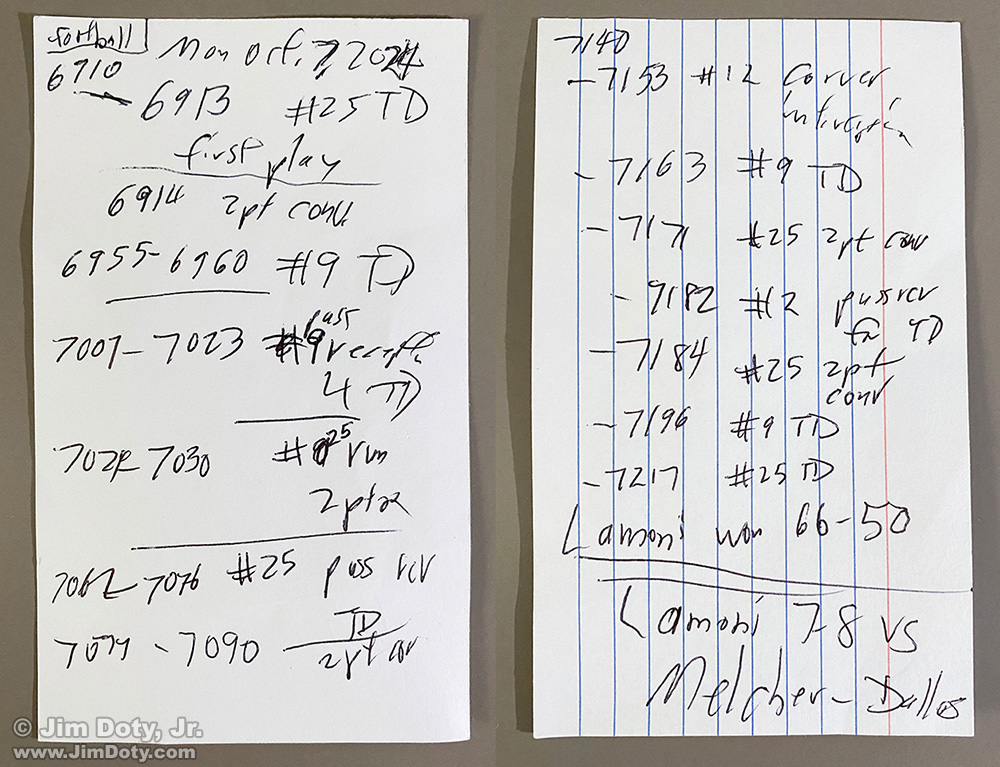 football Mon Oct. 7, 2024
6710
6913 #25 TD
first play
6914 2pt conv.
6955-6960 #9 TD
7007-7023 #9 pass
4 TD
7030 #25 run
2pt
7062-7076 #25 pass rcr
TD
7090 2pt cov
7140
-7153 #12 Corver
-7163 #9 TD
-7171 #25 2pt conv
-7182 #12 pass rcr
for TD
-7184 #25 2pt
conv
-7196 #9 TD
-7217 #25 TD
Lamoni won 66-50
Lamoni 7-8 vs
Melcher-Dallas
© Jim Doty, Jr.
www.JimDoty.com